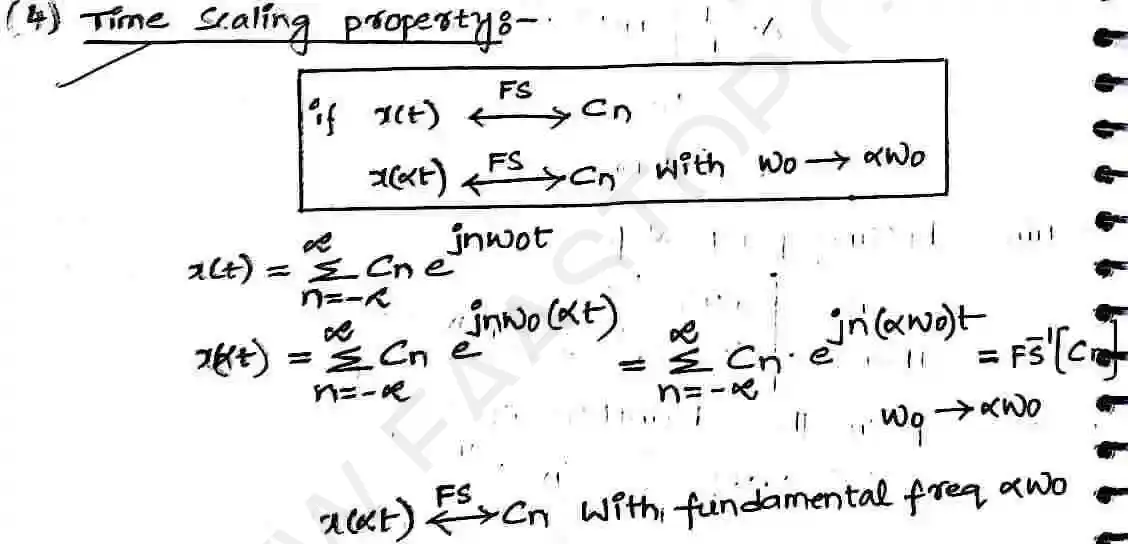 (4) Time Scaling property:-
if x(t) ←FS→ Cn
x(αt) ←FS→ Cn with ω0 → αω0
x(t) = ∑_{n=-∞}^{∞} Cn e^{jnω0t}
x(αt) = ∑_{n=-∞}^{∞} Cn e^{jnω0(αt)} = ∑_{n=-∞}^{∞} Cn · e^{jn(αω0)t} = FS^{-1}[Cn]
ω0 → αω0
x(αt) ←FS→ Cn with fundamental freq αω0